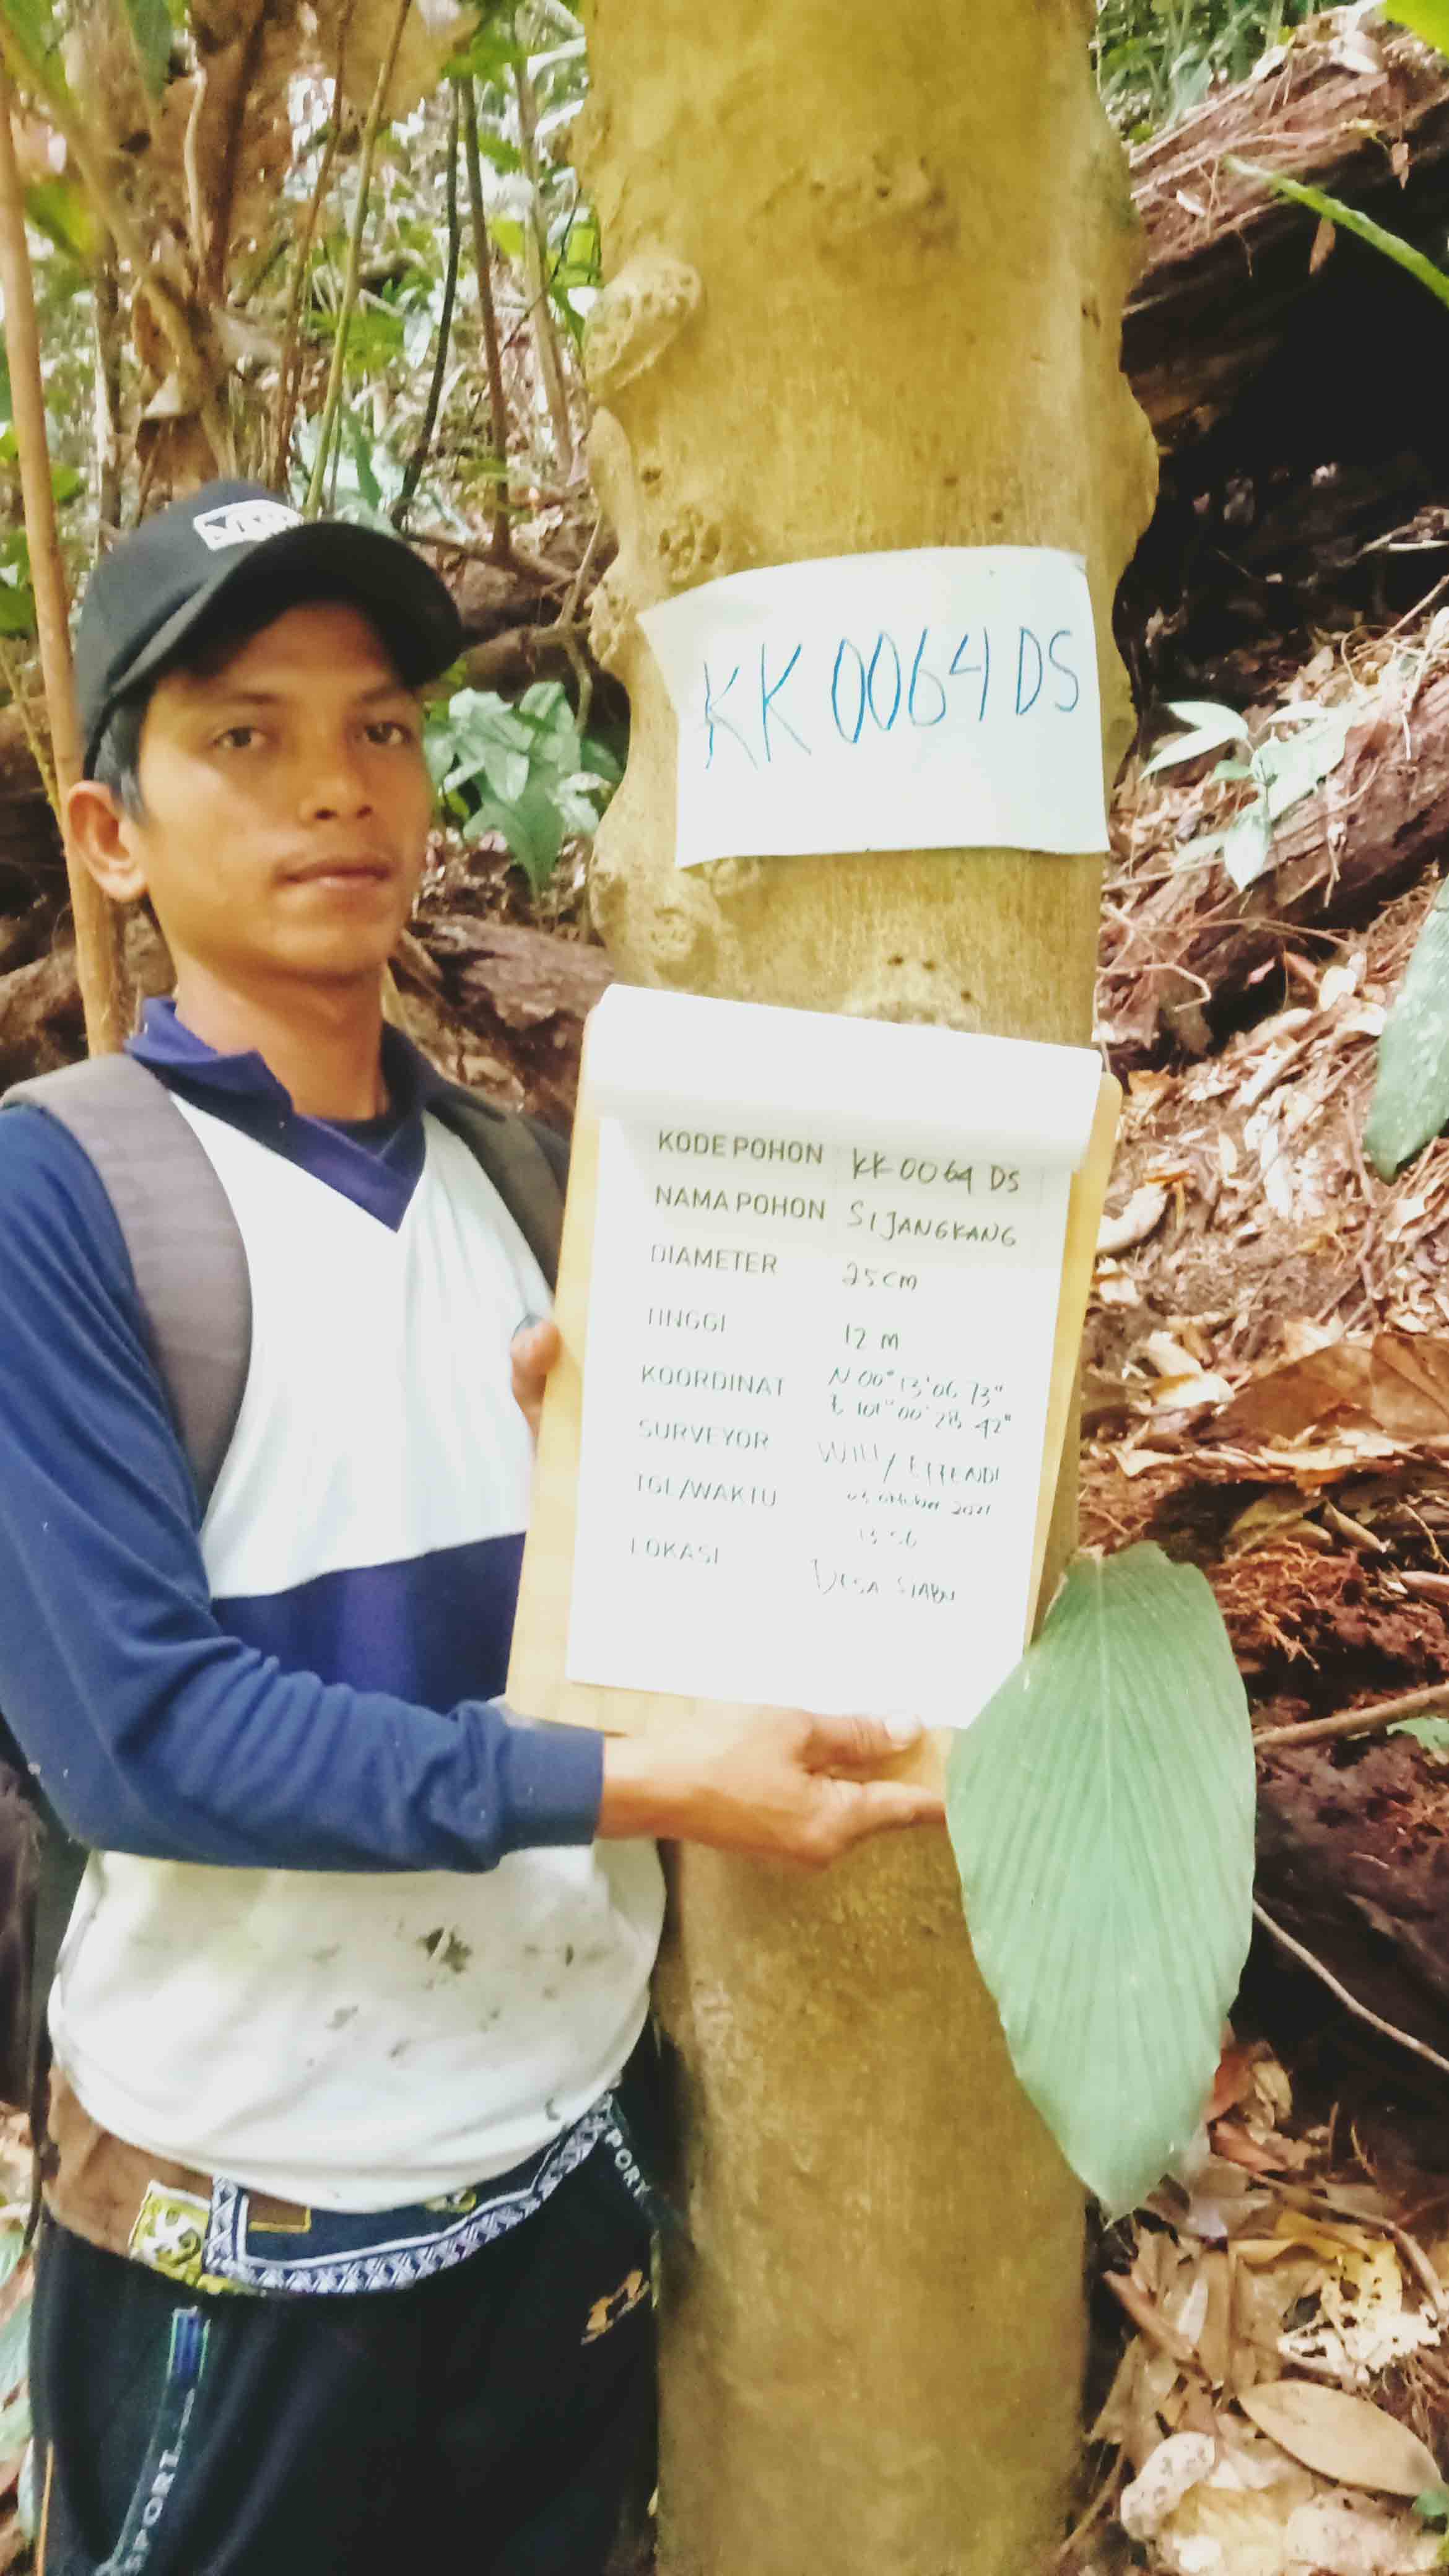 KK 0064 DS
KODE POHON KK 0064 DS
NAMA POHON SIJANGKANG
DIAMETER 25 CM
TINGGI 12 M
KOORDINAT N 00° 13' 06 73"
E 101° 00' 28 42"
SURVEYOR WILLY EFFENDI
TGL/WAKTU 03 Oktober 2021
13:56
LOKASI DESA SIABU
SPORT